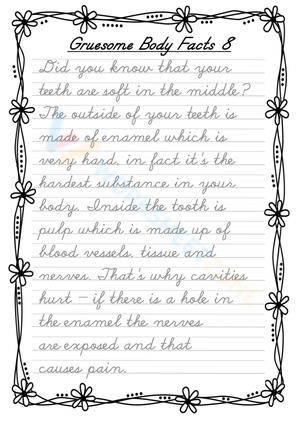 Gruesome Body Facts 8
Did you know that your
teeth are soft in the middle?
The outside of your teeth is
made of enamel which is
very hard, in fact it's the
hardest substance in your
body. Inside the tooth is
pulp which is made up of
blood vessels, tissue and
nerves. That's why cavities
hurt – if there is a hole in
the enamel the nerves
are exposed and that
causes pain.